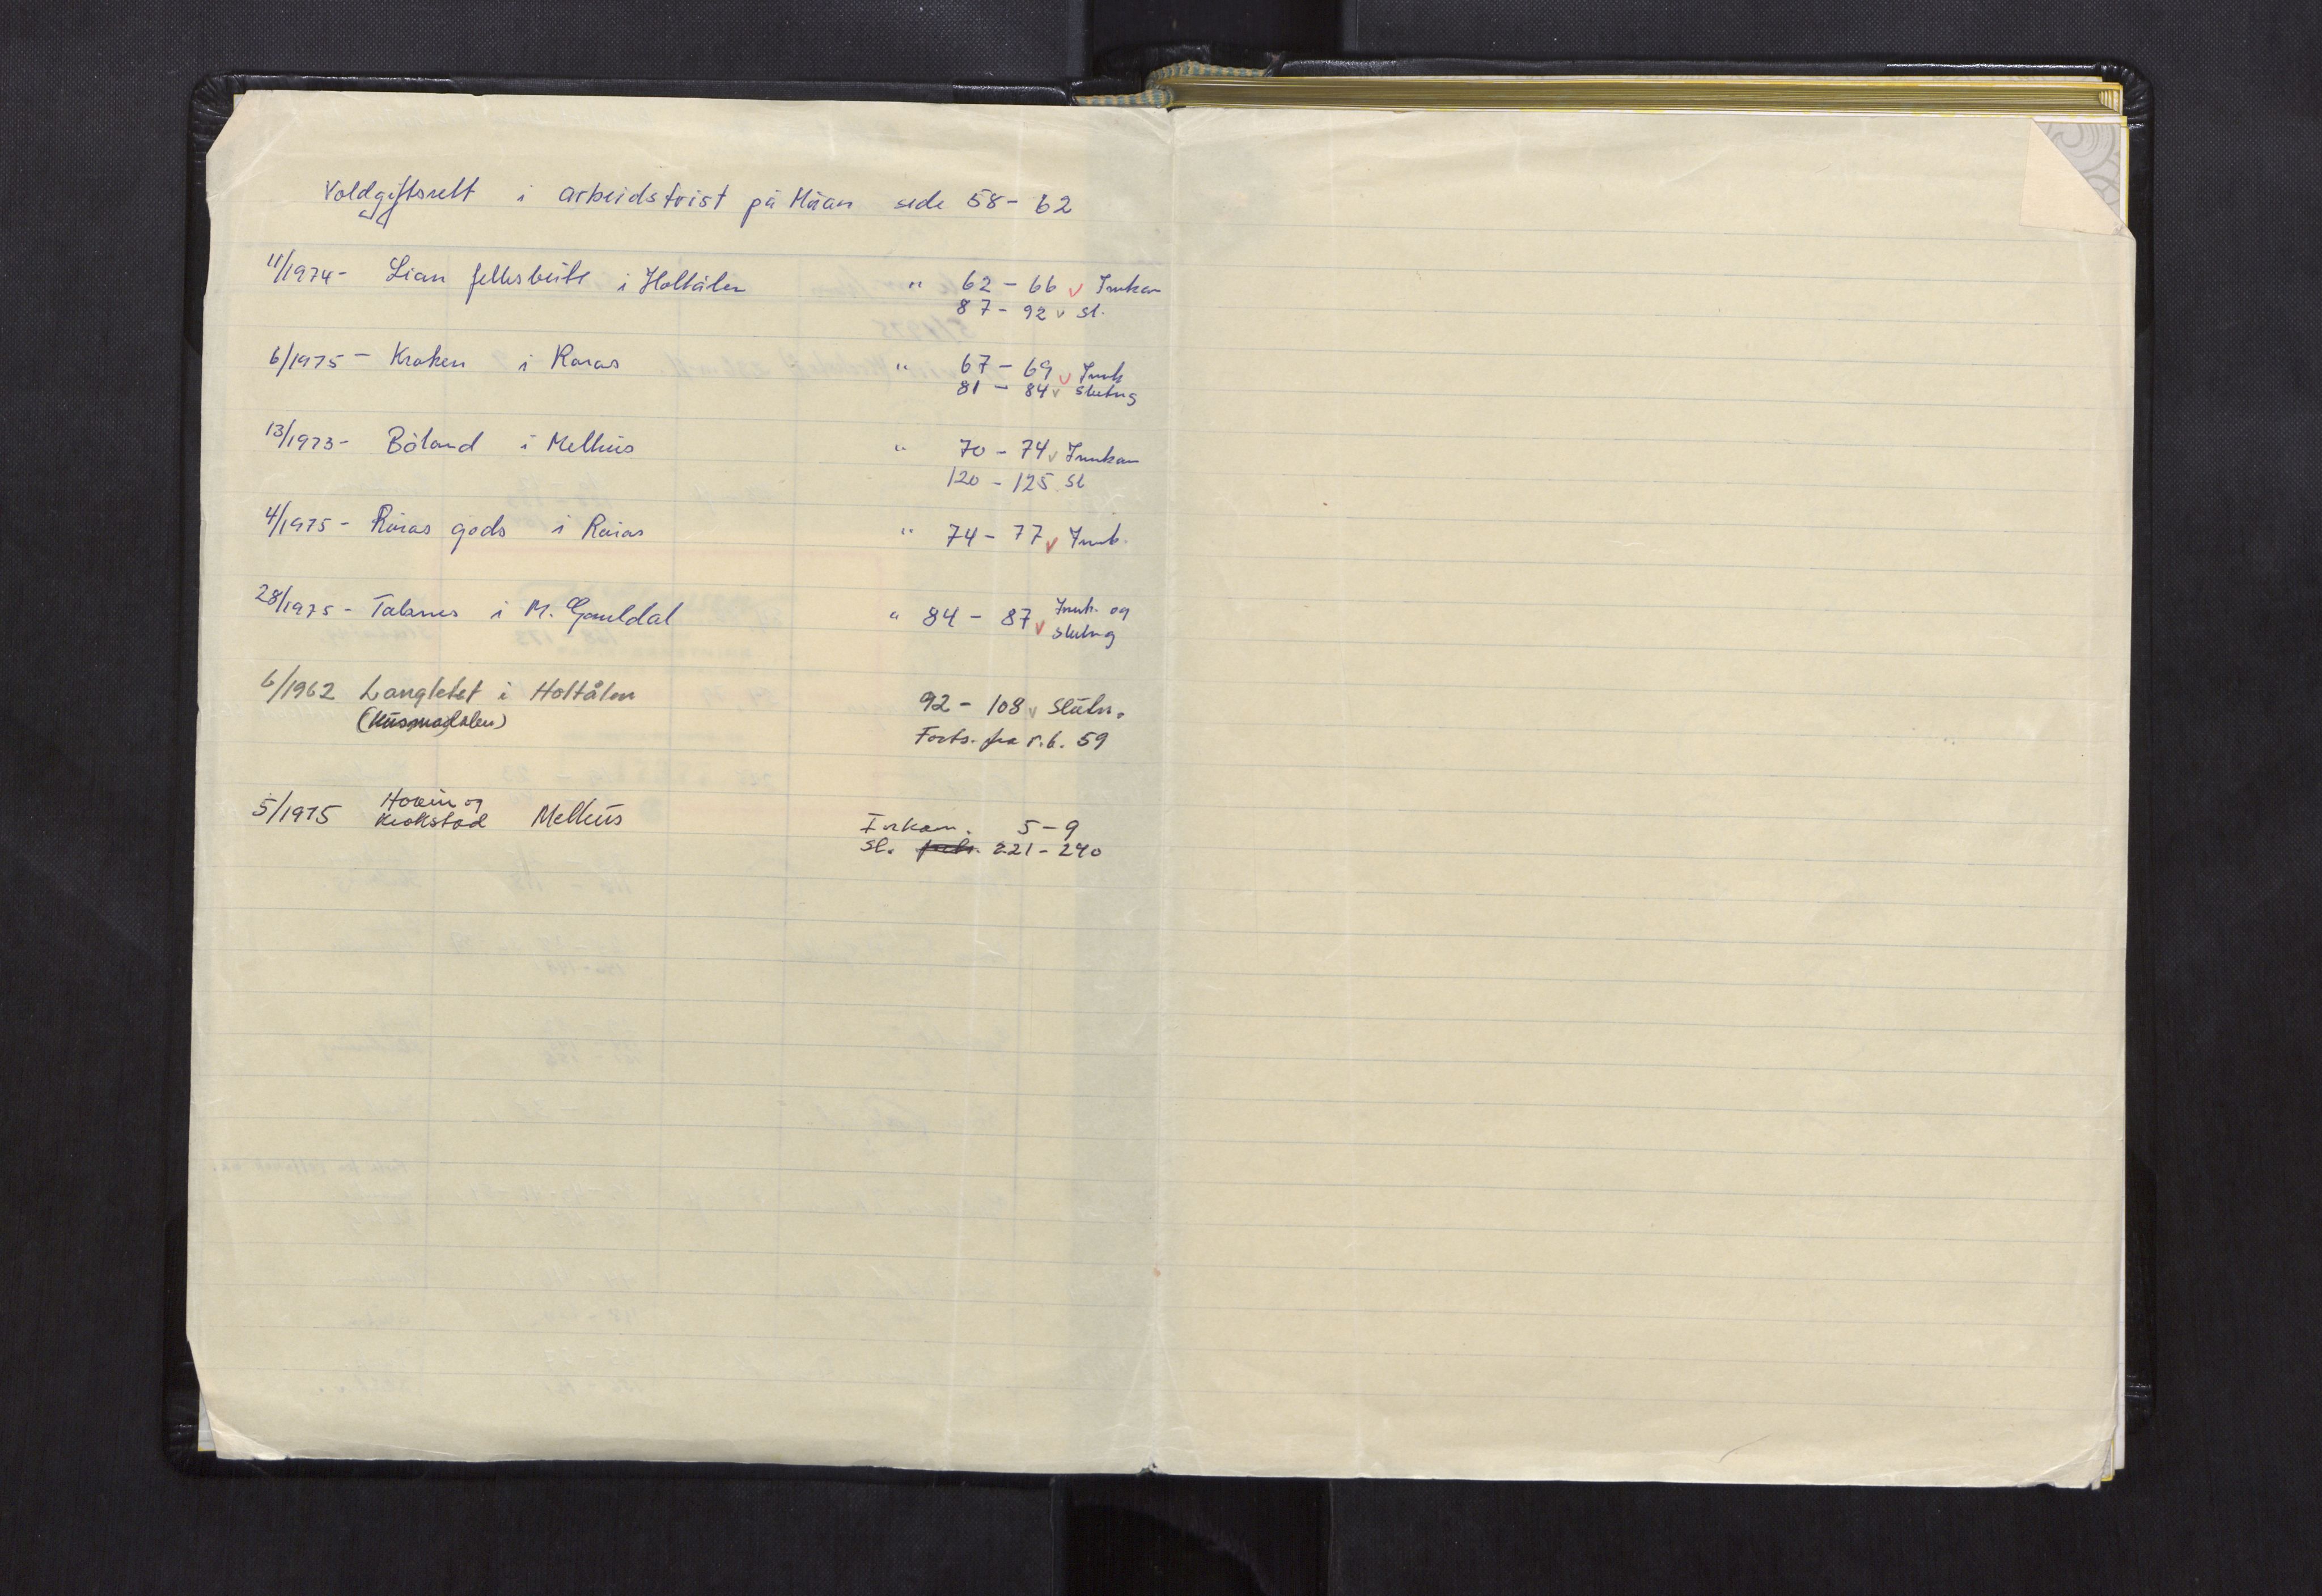 Voldgiftsrett i arbeidstvist på Möan side 58 - 62
11/1974 - Lian fellesbeite i Holtålen " 62 - 66 v Innkan
87 - 92 v sl.
6/1975 - Kroken i Röros " 67 - 69 v Innk
81 - 84 v slutng
13/1973 - Böland i Melhus " 70 - 74 v Innkan
120 - 125 sl
4/1975 - Röros gods i Röros " 74 - 77 v Innk.
28/1975 - Talsnes i M. Gauldal " 84 - 87 v Innk. og slutng
6/1962 Langletet i Holtålen 92 - 108 v slutn.
Forts. fra r.b. 59
5/1975 Hovin og Krokstad Melhus Innkan. 5 - 9
sl. 221 - 240